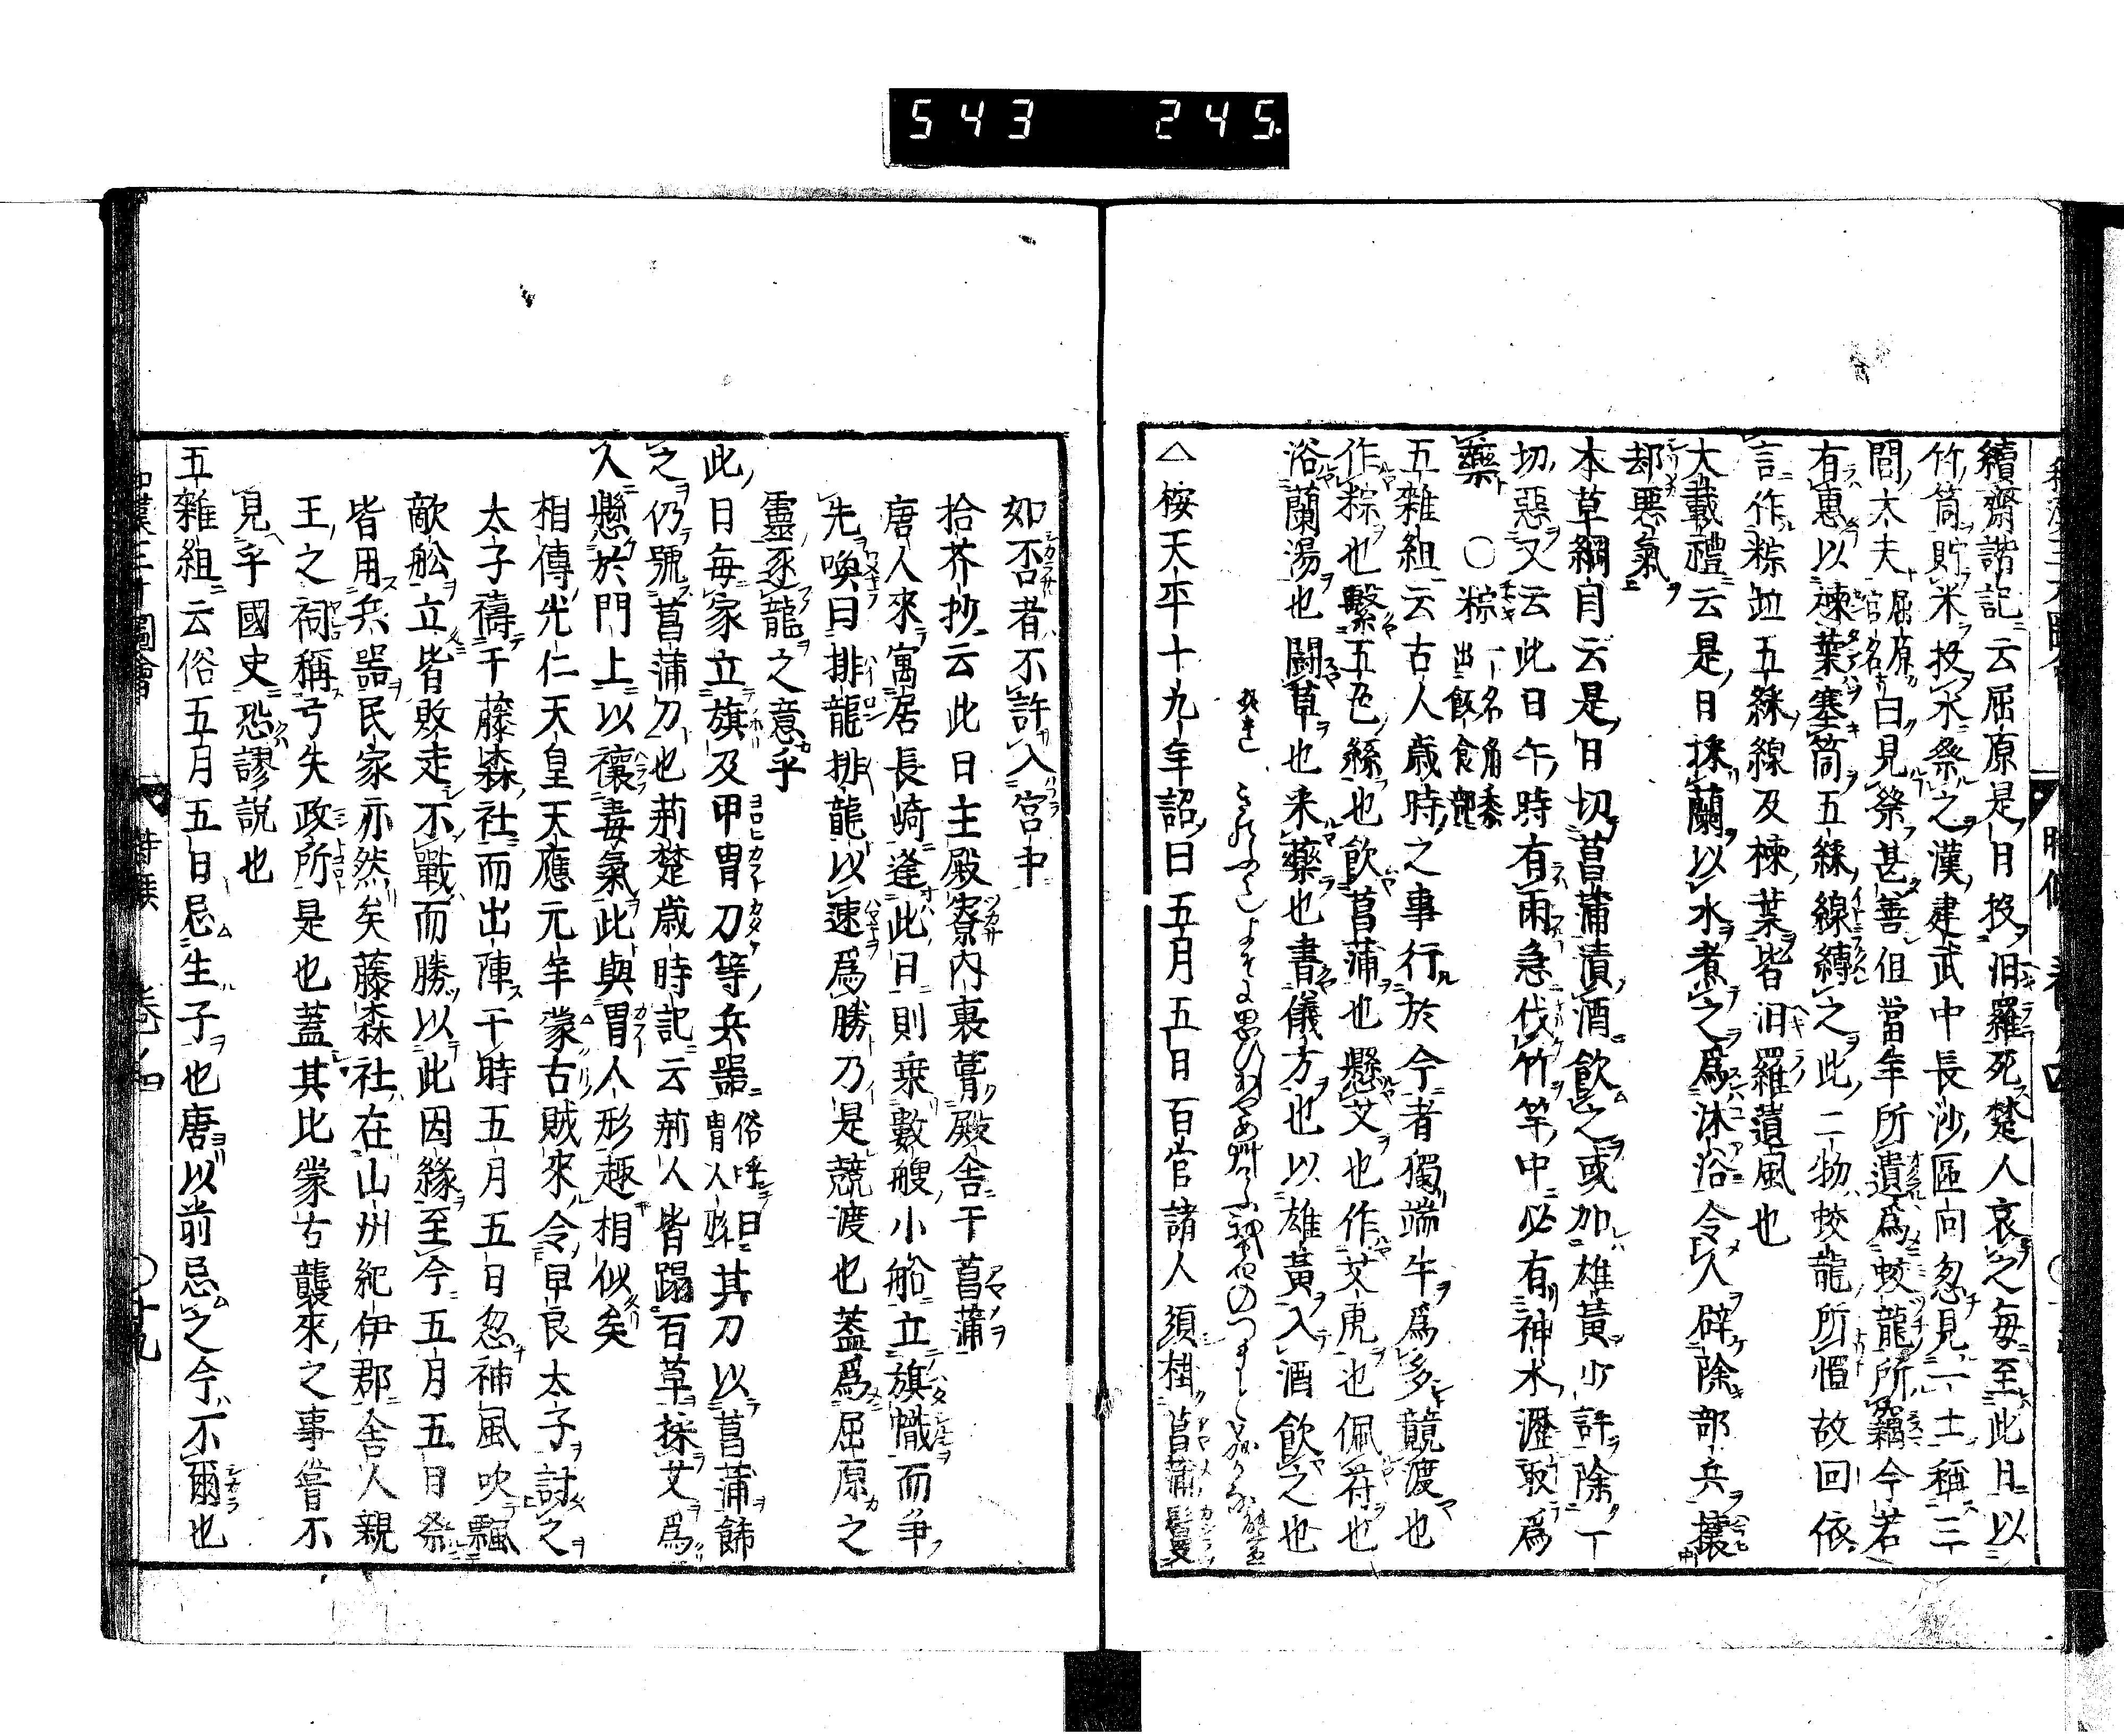 543 245.
續齋諧記云屈原是日投汨羅死楚人哀之毎至此日以
竹筒貯米投水祭之漢建武中長沙區回忽見一士稱三
閭大夫屈原官名也白見祭甚善但當年所遺爲蛟龍所竊今若
有惠以楝葉塞筒五綵線縛之此二物蛟龍所憚故回依
言作粽並五綵線及楝葉皆汨羅遺風也
大戴禮云是日採蘭以水煮之爲沐浴令人辟除部兵攘
却悪氣
本草綱目云是日切菖蒲漬酒飲之或加雄黃少許除一
切惡又云此日午時有雨急伐竹竿中必有神水瀝取爲
藥 〇粽一名角黍出飯食部
五雜組云古人歲時之事行於今者獨端午爲多競渡也
作粽也繫五色絲也飲菖蒲也懸艾也作艾虎也佩符也
浴蘭湯也鬪草也采藥也書儀方也以雄黃入酒飲之也
△桉天平十九年詔曰五月五日百官諸人須掛菖蒲鬘
如否者不許入宮中
拾芥抄云此日主殿寮内裏葺殿舎于菖蒲
唐人來寓居長崎逢此日則乗數艘小船立旗幟而争
先喚曰排龍排龍以速爲勝乃是競渡也蓋爲屈原之
靈逐龍之意乎
此日毎家立旗及甲冑刀等兵噐俗呼曰冑人形其刀以菖蒲飾
之仍號菖蒲刀也荊楚歳時記云荊人皆蹋百草採艾爲
人懸於門上以禳毒氣此與冑人形趣相似矣
相傳光仁天皇天應元年蒙古賊來令早良太子討之
太子禱于藤森社而出陣于時五月五日忽神風吹飄
敵舩立皆敗走不戰而勝以此因緣至今五月五日祭
皆用兵噐民家亦然矣藤森社在山州紀伊郡舎人親
王之祠稱弓失政所是也蓋其比蒙古襲來之事嘗不
見乎國史恐謬説也
五雜組云俗五月五日忌生子也唐以前忌之今不爾也